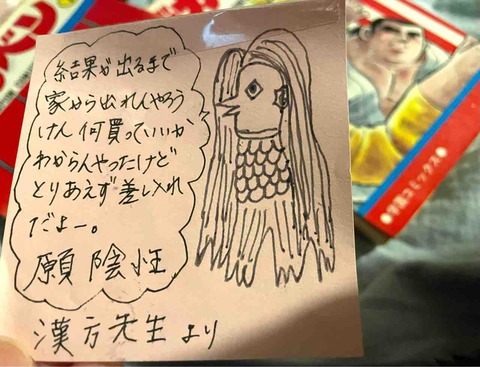 結果が出るまで
家から出れんやろう
けん何買っていいか
わからんやったけど
とりあえず差し入れ
だよー。
願陰性
漢方先生より